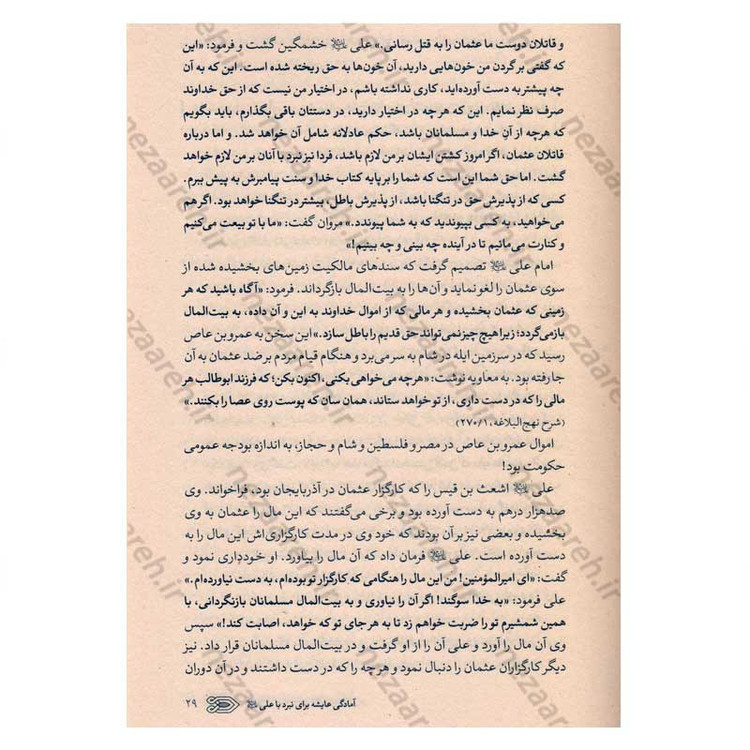 و قاتلان دوست ما عثمان را به قتل رسانی.» علی علیه‌السلام خشمگین گشت و فرمود: «این
که گفتی بر گردن من خون‌هایی دارید، آن خون‌ها به حق ریخته شده است. این که به آن
چه پیشتر به دست آورده‌اید، کاری نداشته باشم، در اختیار من نیست که از حق خداوند
صرف نظر نمایم. این که هر چه در اختیار دارید، در دستتان باقی بگذارم، باید بگویم
که هرچه از آنِ خدا و مسلمانان باشد، حکم عادلانه شامل آن خواهد شد. و اما درباره
قاتلان عثمان، اگر امروز کشتن ایشان بر من لازم باشد، فردا نیز نبرد با آنان بر من لازم خواهد
گشت. اما حق شما این است که شما را بر پایه کتاب خدا و سنت پیامبرش به پیش ببرم.
کسی که از پذیرش حق در تنگنا باشد، از پذیرش باطل، بیشتر در تنگنا خواهد بود. اگر هم
می‌خواهید، به کسی بپیوندید که به شما پیوندد.» مروان گفت: «ما با تو بیعت می‌کنیم
و کنارت می‌مانیم تا در آینده چه بینی و چه بینیم!»
امام علی علیه‌السلام تصمیم گرفت که سندهای مالکیت زمین‌های بخشیده شده از
سوی عثمان را لغو نماید و آن‌ها را به بیت‌المال بازگرداند. فرمود: «آگاه باشید که هر
زمینی که عثمان بخشیده و هر مالی که از اموال خداوند به این و آن داده، به بیت‌المال
بازمی‌گردد؛ زیرا هیچ چیز نمی‌تواند حق قدیم را باطل سازد.» این سخن به عمرو بن عاص
رسید که در سرزمین ایله در شام به سر می‌برد و هنگام قیام مردم بر ضد عثمان به آن
جا رفته بود. به معاویه نوشت: «هرچه می‌خواهی بکنی، اکنون بکن؛ که فرزند ابوطالب هر
مالی را که در دست داری، از تو خواهد ستاند، همان سان که پوست روی عصا را بکنند.»
(شرح نهج‌البلاغه، ۲۷۰/۱)
اموال عمرو بن عاص در مصر و فلسطین و شام و حجاز، به اندازه بودجه عمومی
حکومت بود!
علی علیه‌السلام اشعث بن قیس را که کارگزار عثمان در آذربایجان بود، فراخواند. وی
صدهزار درهم به دست آورده بود و برخی می‌گفتند که این مال را عثمان به وی
بخشیده و بعضی نیز بر آن بودند که خود وی در مدت کارگزاری‌اش این مال را به
دست آورده است. علی علیه‌السلام فرمان داد که آن مال را بیاورد. او خودداری نمود و
گفت: «ای امیرالمؤمنین! من این مال را هنگامی که کارگزار تو بوده‌ام، به دست نیاورده‌ام.»
علی فرمود: «به خدا سوگند! اگر آن را نیاوری و به بیت‌المال مسلمانان بازنگردانی، با
همین شمشیرم تو را ضربت خواهم زد تا به هر جای تو که خواهد، اصابت کند!» سپس
وی آن مال را آورد و علی آن را از او گرفت و در بیت‌المال مسلمانان قرار داد. نیز
دیگر کارگزاران عثمان را دنبال نمود و هرچه را که در دست داشتند و در آن دوران
آمادگی عایشه برای نبرد با علی علیه‌السلام ۲۹
nezaareh.ir